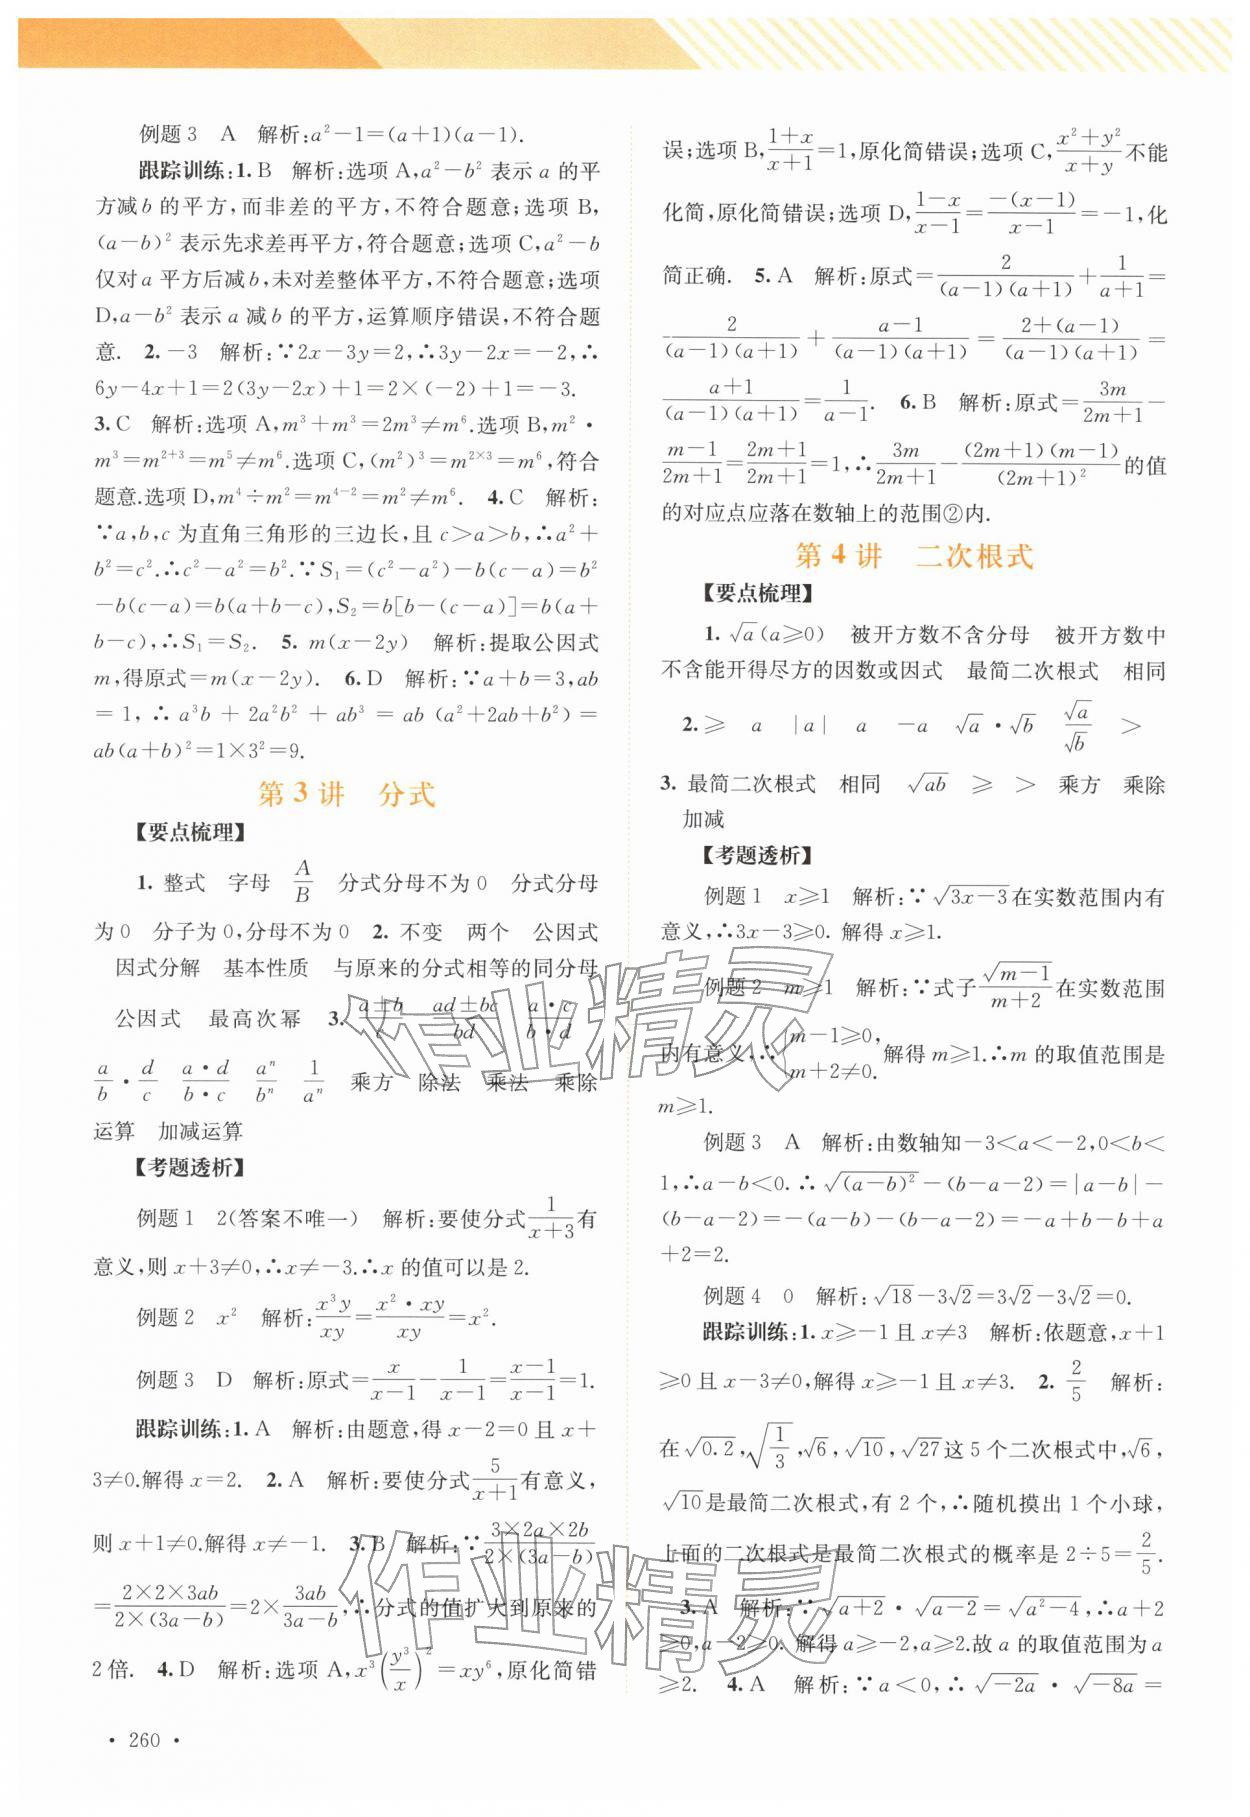 例题3 A 解析:a²-1=(a+1)(a-1).
跟踪训练:1. B 解析:选项 A,a²-b² 表示 a 的平
方减 b 的平方,而非差的平方,不符合题意;选项 B,
(a-b)² 表示先求差再平方,符合题意;选项 C,a²-b
仅对 a 平方后减 b,未对差整体平方,不符合题意;选项
D,a-b² 表示 a 减 b 的平方,运算顺序错误,不符合题
意. 2. -3 解析:∵2x-3y=2,∴3y-2x=-2,∴
6y-4x+1=2(3y-2x)+1=2×(-2)+1=-3.
3. C 解析:选项 A,m³+m³=2m³≠m⁶.选项 B,m²·
m³=m²⁺³=m⁵≠m⁶.选项 C,(m²)³=m²ˣ³=m⁶,符合
题意.选项 D,m⁴÷m²=m⁴⁻²=m²≠m⁶. 4. C 解析:
∵a,b,c 为直角三角形的三边长,且 c>a>b,∴a²+
b²=c².∴c²-a²=b².∵S₁=(c²-a²)-b(c-a)=b²
-b(c-a)=b(a+b-c),S₂=b[b-(c-a)]=b(a+
b-c),∴S₁=S₂. 5. m(x-2y) 解析:提取公因式
m,得原式=m(x-2y). 6. D 解析:∵a+b=3,ab
=1,∴a³b+2a²b²+ab³=ab(a²+2ab+b²)=
ab(a+b)²=1×3²=9.
第 3 讲 分式
【要点梳理】
1. 整式 字母 A/B 分式分母不为 0 分式分母
为 0 分子为 0,分母不为 0 2. 不变 两个 公因式
因式分解 基本性质 与原来的分式相等的同分母
公因式 最高次幂 3. (a±b)/c (ad±bc)/bd (a·c)/(b·d)
a/b·d/c (a·d)/(b·c) aⁿ/bⁿ 1/aⁿ 乘方 除法 乘法 乘除
运算 加减运算
【考题透析】
例题1 2(答案不唯一) 解析:要使分式1/(x+3)有
意义,则 x+3≠0,∴x≠-3.∴x 的值可以是 2.
例题2 x² 解析:x³y/xy=(x²·xy)/xy=x².
例题3 D 解析:原式=x/(x-1)-1/(x-1)=(x-1)/(x-1)=1.
跟踪训练:1. A 解析:由题意,得 x-2=0 且 x+
3≠0.解得 x=2. 2. A 解析:要使分式5/(x+1)有意义,
则 x+1≠0.解得 x≠-1. 3. B 解析:∵(3×2a×2b)/(2×(3a-b))
=(2×2×3ab)/(2×(3a-b))=2×3ab/(3a-b),∴分式的值扩大到原来的
2倍. 4. D 解析:选项 A,x³(y³/x)²=xy⁶,原化简错
· 260 ·
误;选项 B,(1+x)/(x+1)=1,原化简错误;选项 C,(x²+y²)/(x+y)不能
化简,原化简错误;选项 D,(1-x)/(x-1)=-(x-1)/(x-1)=-1,化
简正确. 5. A 解析:原式=2/((a-1)(a+1))+1/(a+1)=
2/((a-1)(a+1))+(a-1)/((a-1)(a+1))=(2+(a-1))/((a-1)(a+1))=
(a+1)/((a-1)(a+1))=1/(a-1). 6. B 解析:原式=3m/(2m+1)-
(m-1)/(2m+1)=(2m+1)/(2m+1)=1,∴3m/(2m+1)-((2m+1)(m-1))/(2m+1)²的值
的对应点应落在数轴上的范围②内.
第 4 讲 二次根式
【要点梳理】
1. √a(a≥0) 被开方数不含分母 被开方数中
不含能开得尽方的因数或因式 最简二次根式 相同
2. ≥ a |a| a -a √a·√b √a/√b >
3. 最简二次根式 相同 √ab ≥ > 乘方 乘除
加减
【考题透析】
例题1 x≥1 解析:∵√(3x-3)在实数范围内有
意义,∴3x-3≥0. 解得 x≥1.
例题2 m≥1 解析:∵式子√(m-1)/(m+2)在实数范围
内有意义,∴{m-1≥0, m+2≠0. 解得 m≥1.∴m 的取值范围是
m≥1.
例题3 A 解析:由数轴知-3<a<-2,0<b<
1,∴a-b<0.∴√(a-b)²-(b-a-2)=|a-b|-
(b-a-2)=-(a-b)-(b-a-2)=-a+b-b+a
+2=2.
例题4 0 解析:√18-3√2=3√2-3√2=0.
跟踪训练:1. x≥-1 且 x≠3 解析:依题意,x+1
≥0 且 x-3≠0,解得 x≥-1 且 x≠3. 2. 2/5 解析:
在√0.2,√(1/3),√6,√10,√27这 5 个二次根式中,√6,
√10是最简二次根式,有 2 个,∴随机摸出 1 个小球,
上面的二次根式是最简二次根式的概率是 2÷5=2/5.
3. A 解析:∵√(a+2)·√(a-2)=√(a²-4),∴a+2
≥0,a-2≥0. 解得 a≥-2,a≥2.故 a 的取值范围为 a
≥2. 4. A 解析:∵a<0,∴√(-2a)·√(-8a)=
作业精灵
作业精灵